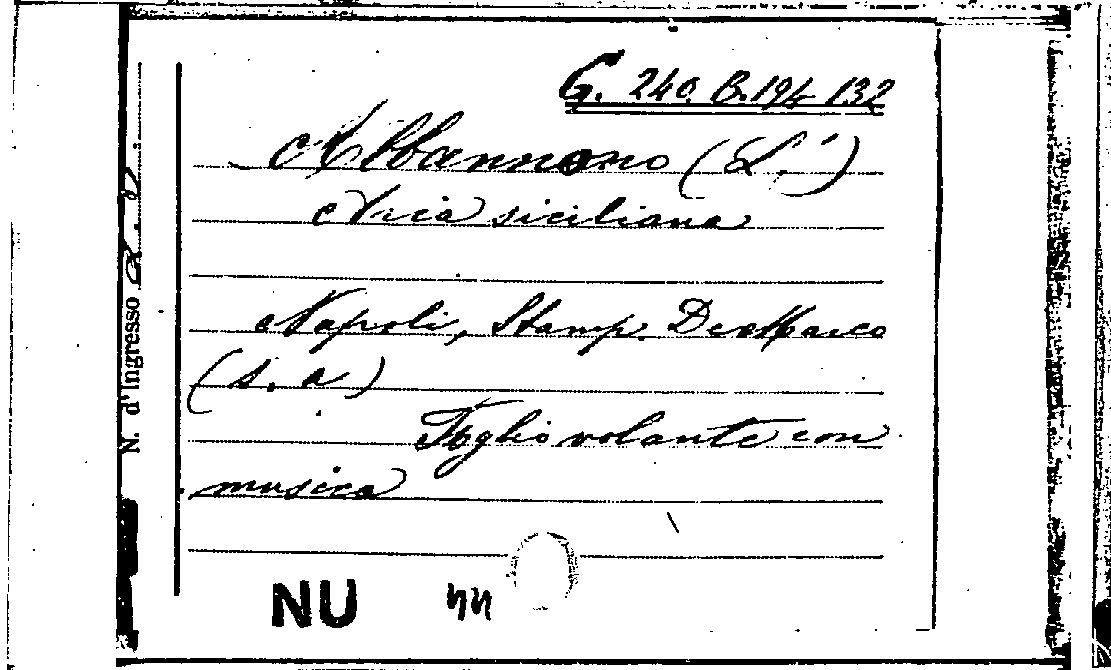 G. 240. B. 194 132
Abbannono (L')
Aria siciliana
Napoli, Stamp. De Marco
(s. a)
Foglio volante con
musica
N. d'Ingresso
NU nn